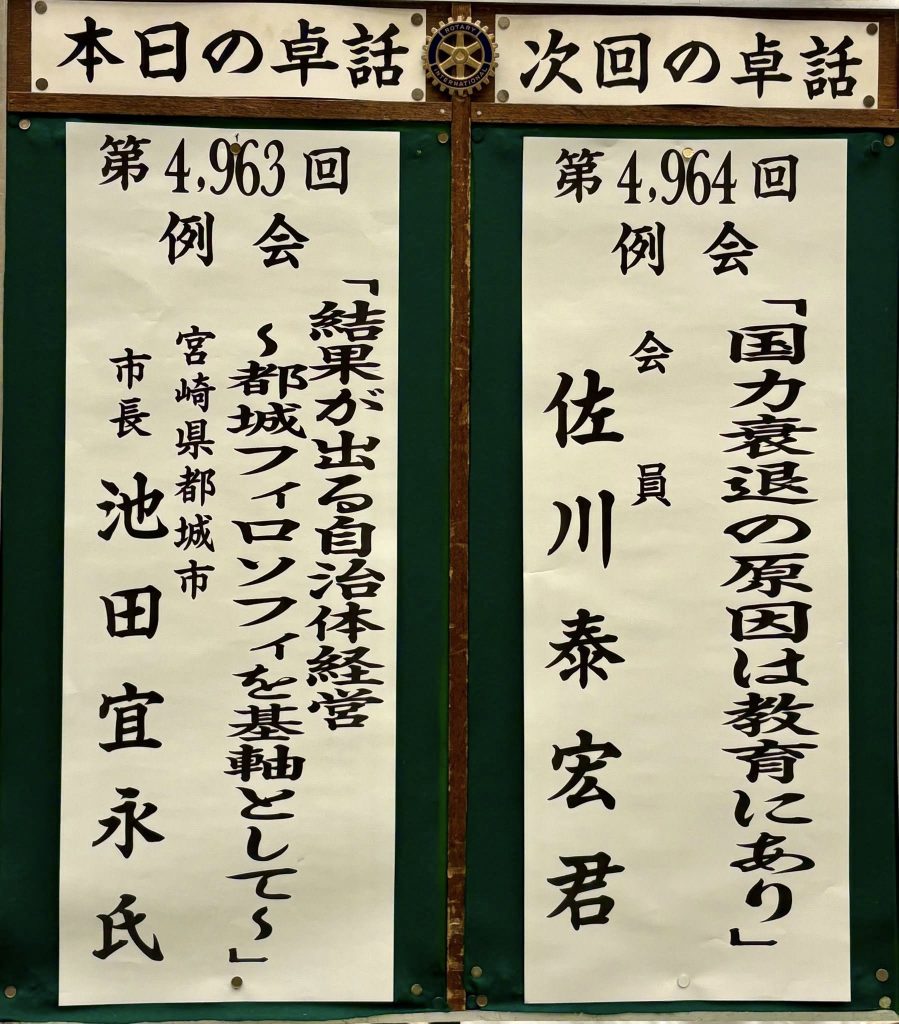 本日の卓話
ROTARY
INTERNATIONAL
次回の卓話
第4,963回
例会
「結果が出る自治体経営
～都城フィロソフィを基軸として～」
宮崎県都城市
市長 池田宜永氏
第4,964回
例会
「国力衰退の原因は教育にあり」
会員
佐川泰宏君